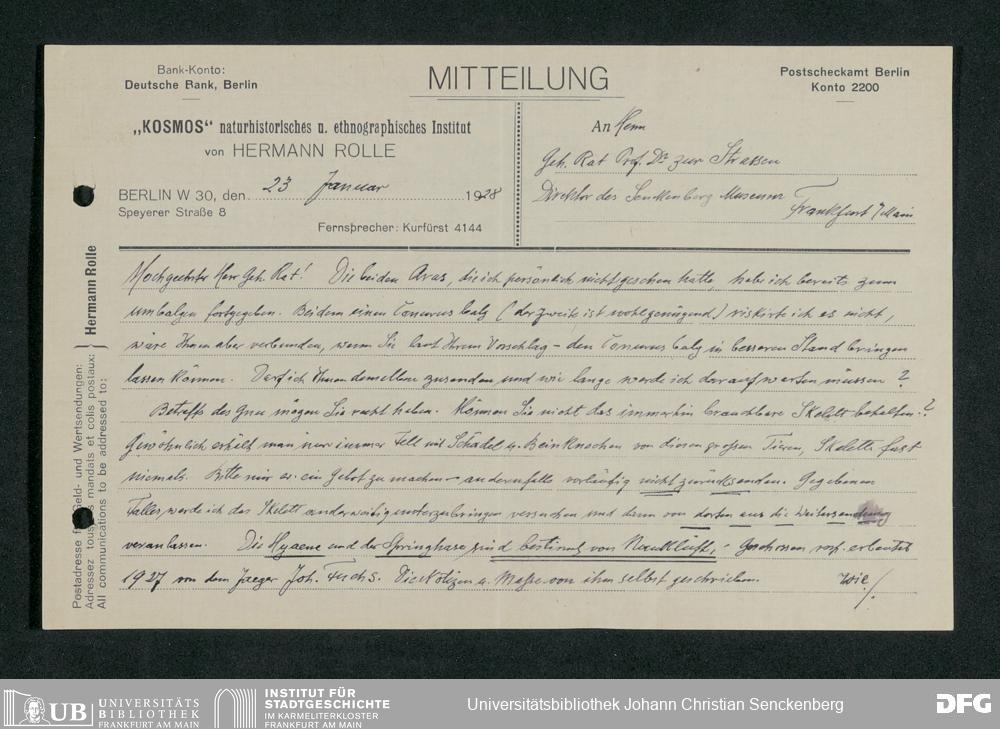 Bank-Konto:
Deutsche Bank, Berlin
MITTEILUNG
Postscheckamt Berlin
Konto 2200
„KOSMOS“ naturhistorisches u. ethnographisches Institut
von HERMANN ROLLE
BERLIN W 30, den 23 Januar 1928
Speyerer Straße 8
Fernsprecher: Kurfürst 4144
An Herrn
Geh. Rat Prof. Dr zur Strassen
Direktor des Senckenberg Museum
Frankfurt / Main
Hochgeehrter Herr Geh. Rat! Die beiden Aras, die ich persönlich nicht gesehen hatte, habe ich bereits zum
umbalgen fortgegeben. Bei dem einen Conurus balg (der zweite ist wohl genügend) riskirte ich es nicht,
wäre Ihnen aber verbunden, wenn Sie laut Ihrem Vorschlag – den Conurus balg in besseren Stand bringen
lassen können. Darf ich Ihnen denselben zusenden und wie lange werde ich darauf warten müssen?
Betreffs des Gnu mögen Sie recht haben. Können Sie nicht das immerhin brauchbare Skelett behalten?
Gewöhnlich erhält man nur immer Fell mit Schädel u. Beinknochen von diesen grossen Tieren, Skelette fast
niemals. Bitte mir ev. ein Gebot zu machen – andernfalls vorläufig nicht zurücksenden. Gegebenen
Falles werde ich das Skelett anderweitig unterzubringen versuchen und dann von dorten aus die Weitersendung
veranlassen. Die Hyaene und der Springhase sind bestimmt von Naukluft, – Geschossen resp. erbeutet
1927 von dem Jaeger Joh. Fuchs. Die Notizen u. Maße von ihm selbst geschrieben. wie /.
Postadresse für Geld- und Wertsendungen:
Adressez tous mandats et colis postaux:
All communications to be addressed to:
Hermann Rolle
UB UNIVERSITÄTS
BIBLIOTHEK
FRANKFURT AM MAIN
INSTITUT FÜR
STADTGESCHICHTE
IM KARMELITERKLOSTER
FRANKFURT AM MAIN
Universitätsbibliothek Johann Christian Senckenberg
DFG